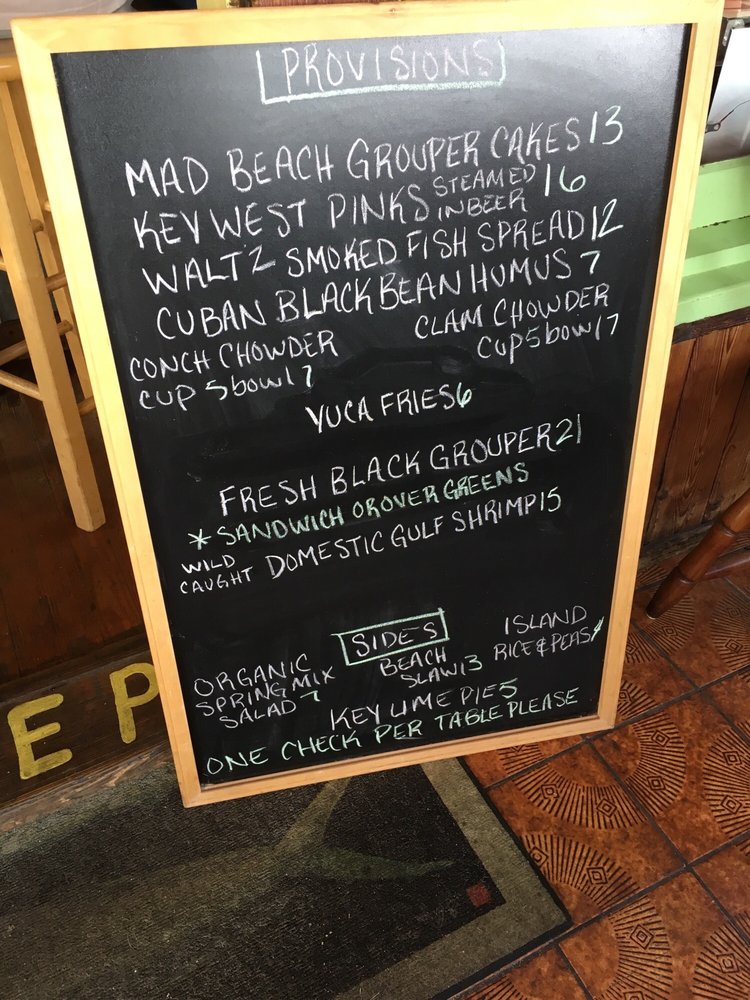 PROVISIONS
MAD BEACH GROUPER CAKES 13
KEY WEST PINKS STEAMED IN BEER 16
WALTZ SMOKED FISH SPREAD 12
CUBAN BLACK BEAN HUMUS 7
CONCH CHOWDER
CUP 5 bowl 7
CLAM CHOWDER
CUP 5 bowl 7
YUCA FRIES 6
FRESH BLACK GROUPER 21
* SANDWICH OR OVER GREENS
WILD CAUGHT DOMESTIC GULF SHRIMP 15
SIDES
ORGANIC
SPRING MIX
SALAD 7
BEACH
SLAW 3
ISLAND
RICE & PEAS 4
KEY LIME PIE 5
ONE CHECK PER TABLE PLEASE
EP